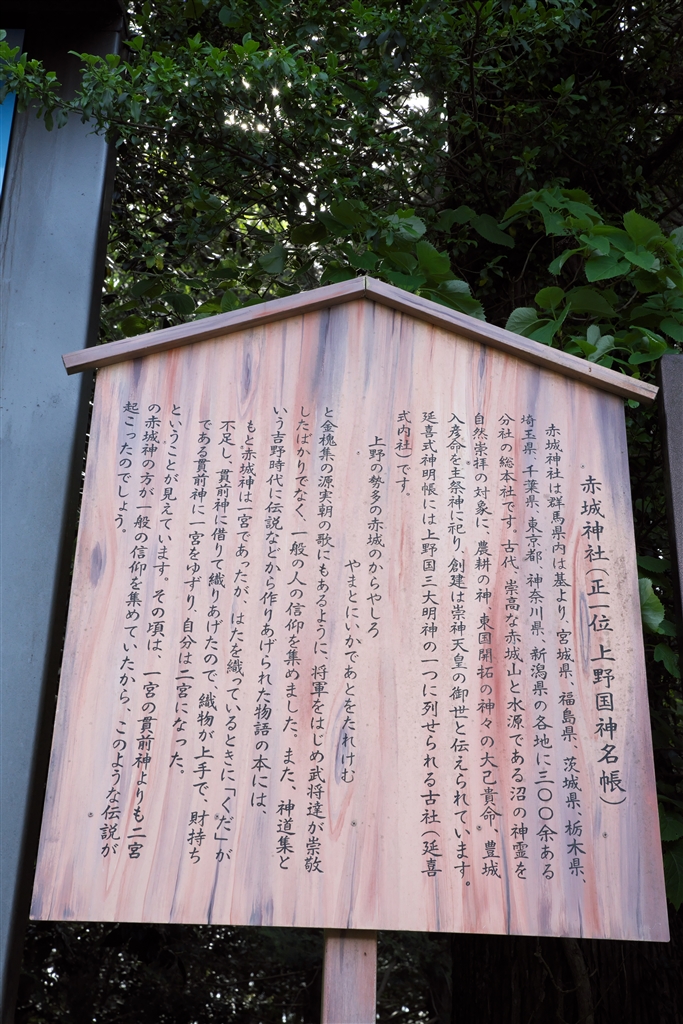 赤城神社(正一位 上野国神名帳)
赤城神社は群馬県内は基より、宮城県、福島県、茨城県、栃木県、
埼玉県、千葉県、東京都、神奈川県、新潟県の各地に三〇〇余ある
分社の総本社です。古代、崇高な赤城山と水源である沼の神霊を
自然崇拝の対象に、農耕の神、東国開拓の神々の大己貴命、豊城
入彦命を主祭神に祀り、創建は崇神天皇の御世と伝えられています。
延喜式神明帳には上野国三大明神の一つに列せられる古社(延喜
式内社)です。
上野の勢多の赤城のからやしろ
やまとにいかであとをたれけむ
と金槐集の源実朝の歌にもあるように、将軍をはじめ武将達が崇敬
したばかりでなく、一般の人の信仰を集めました。また、神道集と
いう吉野時代に伝説などから作りあげられた物語の本には、
もと赤城神は一宮であったが、はたを織っているときに「くだ」が
不足し、貫前神に借りて織りあげたので、織物が上手で、財持ち
である貫前神に一宮をゆずり、自分は二宮になった。
ということが見えています。その頃は、一宮の貫前神よりも二宮
の赤城神の方が一般の信仰を集めていたから、このような伝説が
起こったのでしょう。